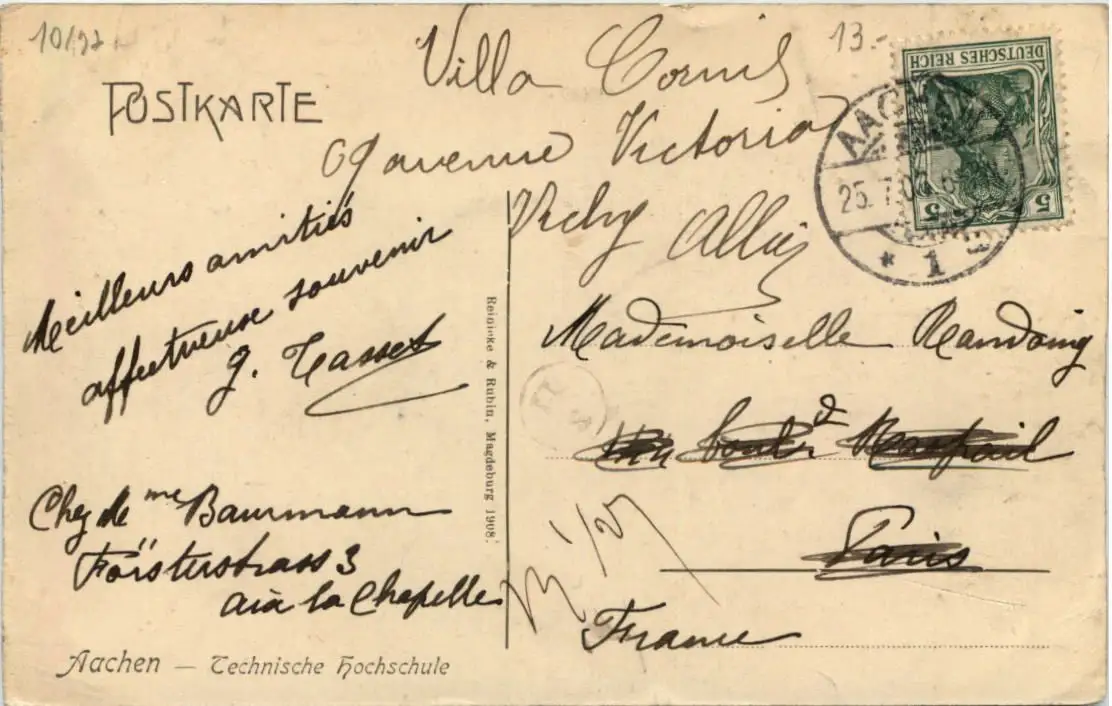 10/22
13.-
Villa
avenue Victoria
Vichy Allier
POSTKARTE
DEUTSCHES REICH
5 5
AACHEN
25.7.0
* 1
Meilleurs amitiés
affectueuse souvenir
g. Tasset
Chez de me Baurmann
Försterstrass 3
aix la Chapelle
Aachen — Technische Hochschule
Reinicke & Rubin, Magdeburg 1908.
Mademoiselle Randoing
boulvd Raspail
Paris
France